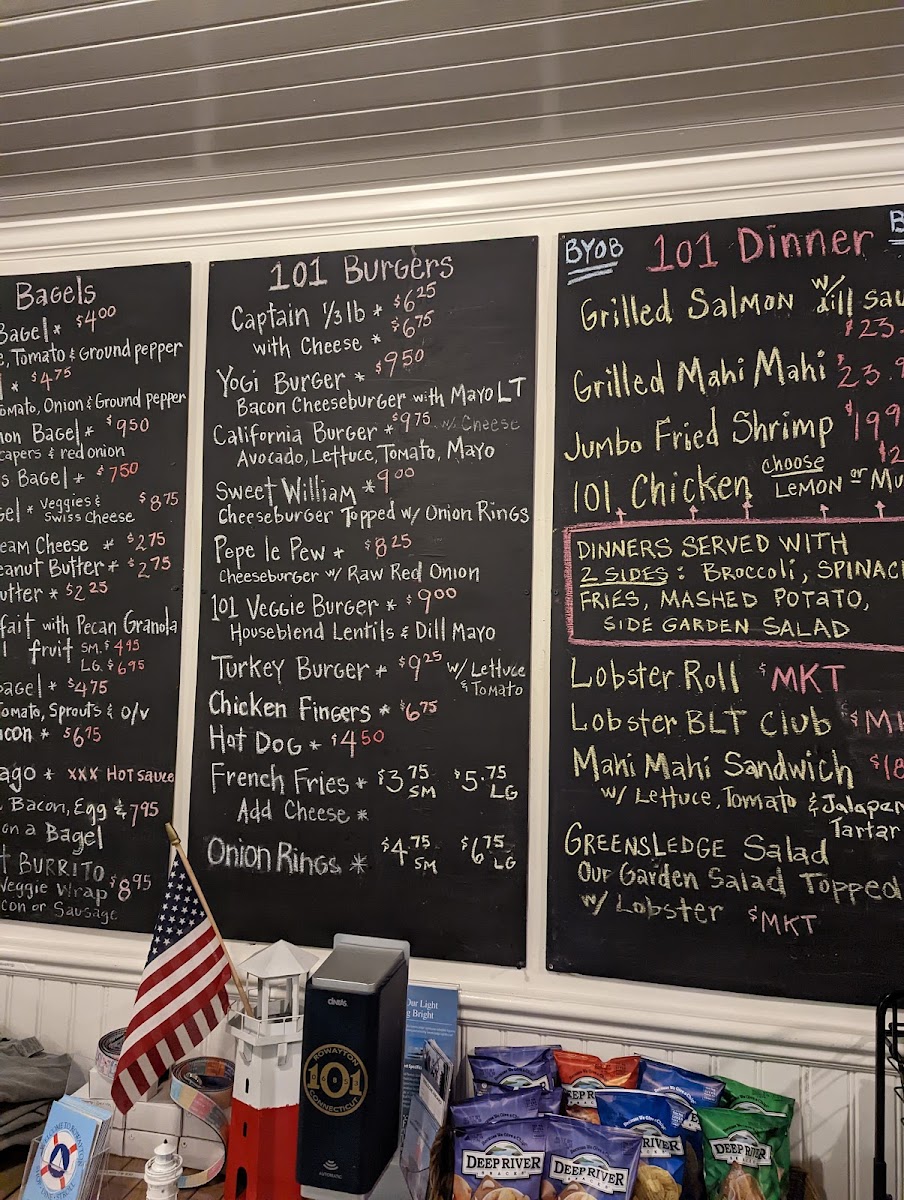 Bagels
Bagel * $4.00
Tomato & Ground pepper
* $4.75
Onion & Ground pepper
Bagel * $9.50
capers & red onion
Bagel * $7.50
Veggies & Swiss Cheese $8.75
Cheese * $2.75
Butter * $2.75
* $2.25
with Pecan Granola
fruit SM. $4.95
LG. $6.95
* $4.75
Sprouts & O/V
* $6.75
* XXX HOT SAUCE
Bacon, Egg & 7.95
on a Bagel
BURRITO
Veggie Wrap $8.95
or Sausage
101 Burgers
Captain 1/3 lb * $6.25
with Cheese * $6.75
Yogi Burger * $9.50
Bacon Cheeseburger with Mayo LT
California Burger * $9.75 w/ Cheese
Avocado, Lettuce, Tomato, Mayo
Sweet William * $9.00
Cheeseburger Topped w/ Onion Rings
Pepe le Pew * $8.25
Cheeseburger w/ Raw Red Onion
101 Veggie Burger * $9.00
Houseblend Lentils & Dill Mayo
Turkey Burger * $9.25 w/ Lettuce
& Tomato
Chicken Fingers * $6.75
Hot Dog * $4.50
French Fries * $3.75 SM $5.75 LG
Add Cheese *
Onion Rings * $4.75 SM $6.75 LG
BYOB 101 Dinner
Grilled Salmon w/ dill
$23.
Grilled Mahi Mahi $23.9
Jumbo Fried Shrimp $19.9
101 Chicken choose LEMON or
DINNERS SERVED WITH
2 SIDES: BROCCOLI,
FRIES, MASHED POTATO,
SIDE GARDEN SALAD
Lobster Roll $MKT
Lobster BLT Club
Mahi Mahi Sandwich $18
w/ Lettuce, Tomato &
Tartar
GREENSLEDGE Salad
Our Garden Salad Topped
w/ Lobster $MKT
CINTAS
ROWAYTON
101
CONNECTICUT
AUTOMATIC
Our Light
Bright
DEEP RIVER
SNACKS
DEEP RIVER
SNACKS
RIVER
DEEP RIVER